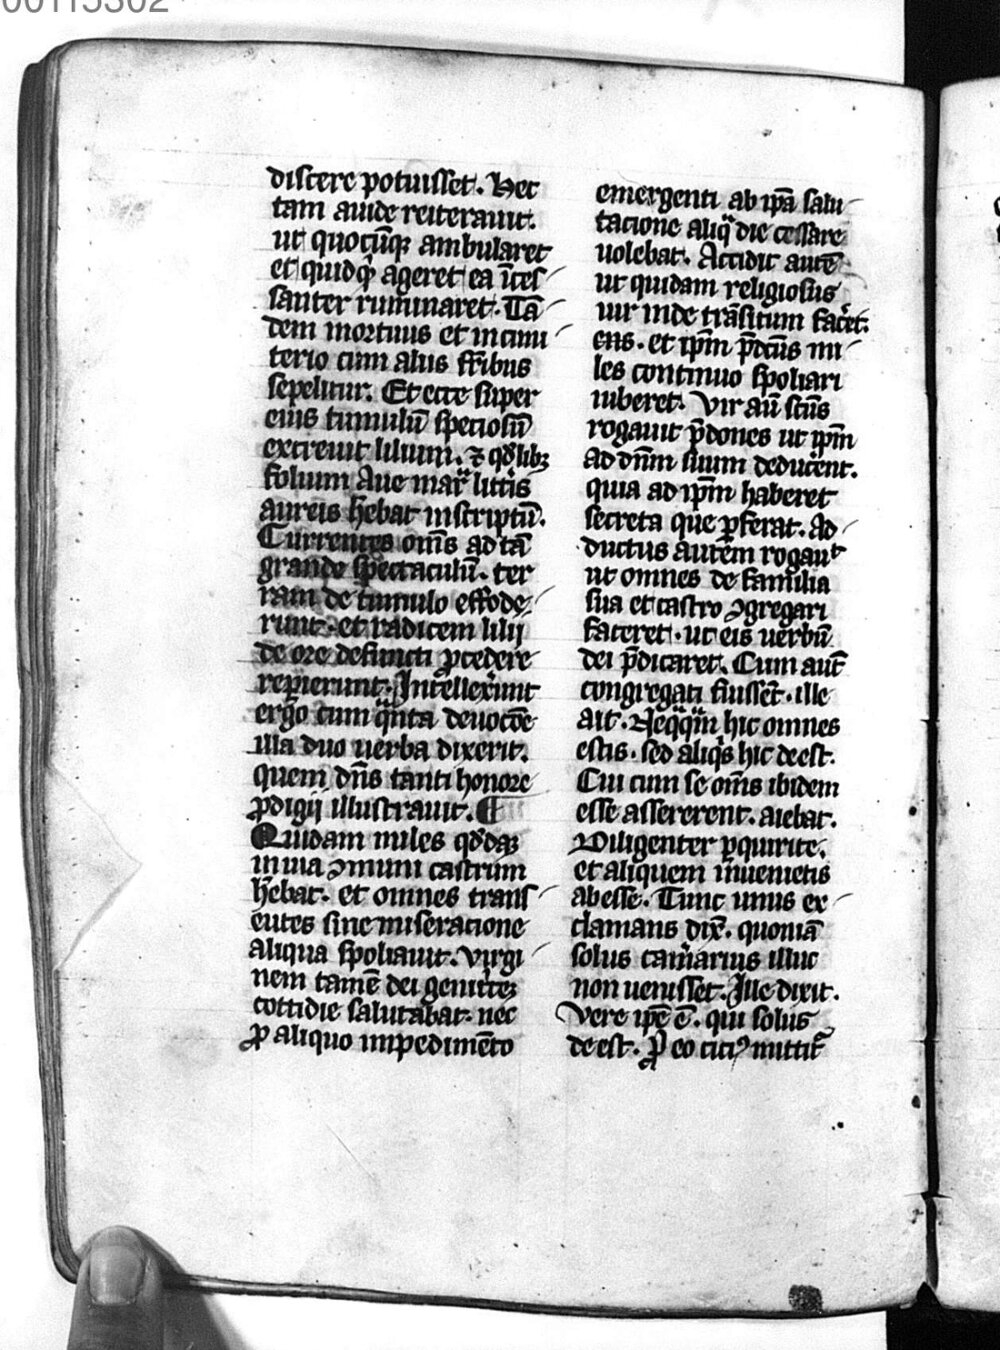 00115302
discere potuisset. Hec
tam auide reiterauit.
ut quocūqꝫ ambularet
et quidqͥd ageret ea īces
santer ruminaret. Tā
dem mortuus et in cimi
terio cum aliis fr̄ibus
sepelitur. Et ecce super
eius tumulū speciosū
excreuit lilium. ⁊ qdͦlibꝫ
folium Aue marͣ litt̄is
aureis hēbat inscriptū.
Currentes om̄s ad tā
grande spectaculū. ter
ram de tumulo effode
runt. et radicem lilij
de ore defuncti ꝓcedere
repierunt. Intellexͬunt
ergo cum qͣnta deuocōe
illa duo uerba dixerit.
quem dn̄s tanti honore
ꝓdigij illustrauit.
Quidam miles qdͦdaꝫ
in uia ꝯmuni castrum
hēbat. et omnes trans
eutes sine miseracione
aliqua spoliauit. virgi
nem tamē dei genitͥceꝫ
cottidie salutabat. nec
ꝓ aliquo impedimēto
emergenti ab ip̄a salu
tacione aliqͣ die cessare
uolebat. Accidit autē
ut quidam religiosus
uir inde trāsitum facͬet.
ens. et ip̄m p̄dc̄us mi
les continuo spoliari
iuberet. Vir au̅ sc̄us
rogauit p̄dones ut ip̄m
ad dn̄m suum deducͬent.
quia ad ip̄m haberet
secreta que ꝓferat. Ad
ductus autem rogauͭ
ut omnes de familia
sua et castro ꝯgregari
faceret. ut eis uerbū
dei p̄dicaret. Cum aut̄
congregati fuissēt. ille
ait. Neqͣqͣm hic omnes
estis. sed aliqͥs hic deest.
Cui cum se om̄s ibidem
esse assererent. aiebat.
Diligenter ꝑquirite.
et aliquem inuenietis
abesse. Tunc unus ex
clamans dix̄. quoniā
solus camͬarius illuc
non uenisset. Ille dixit.
Vere ip̄e ē. qui solus
deest. P̱ eo citiꝰ mittitͬ